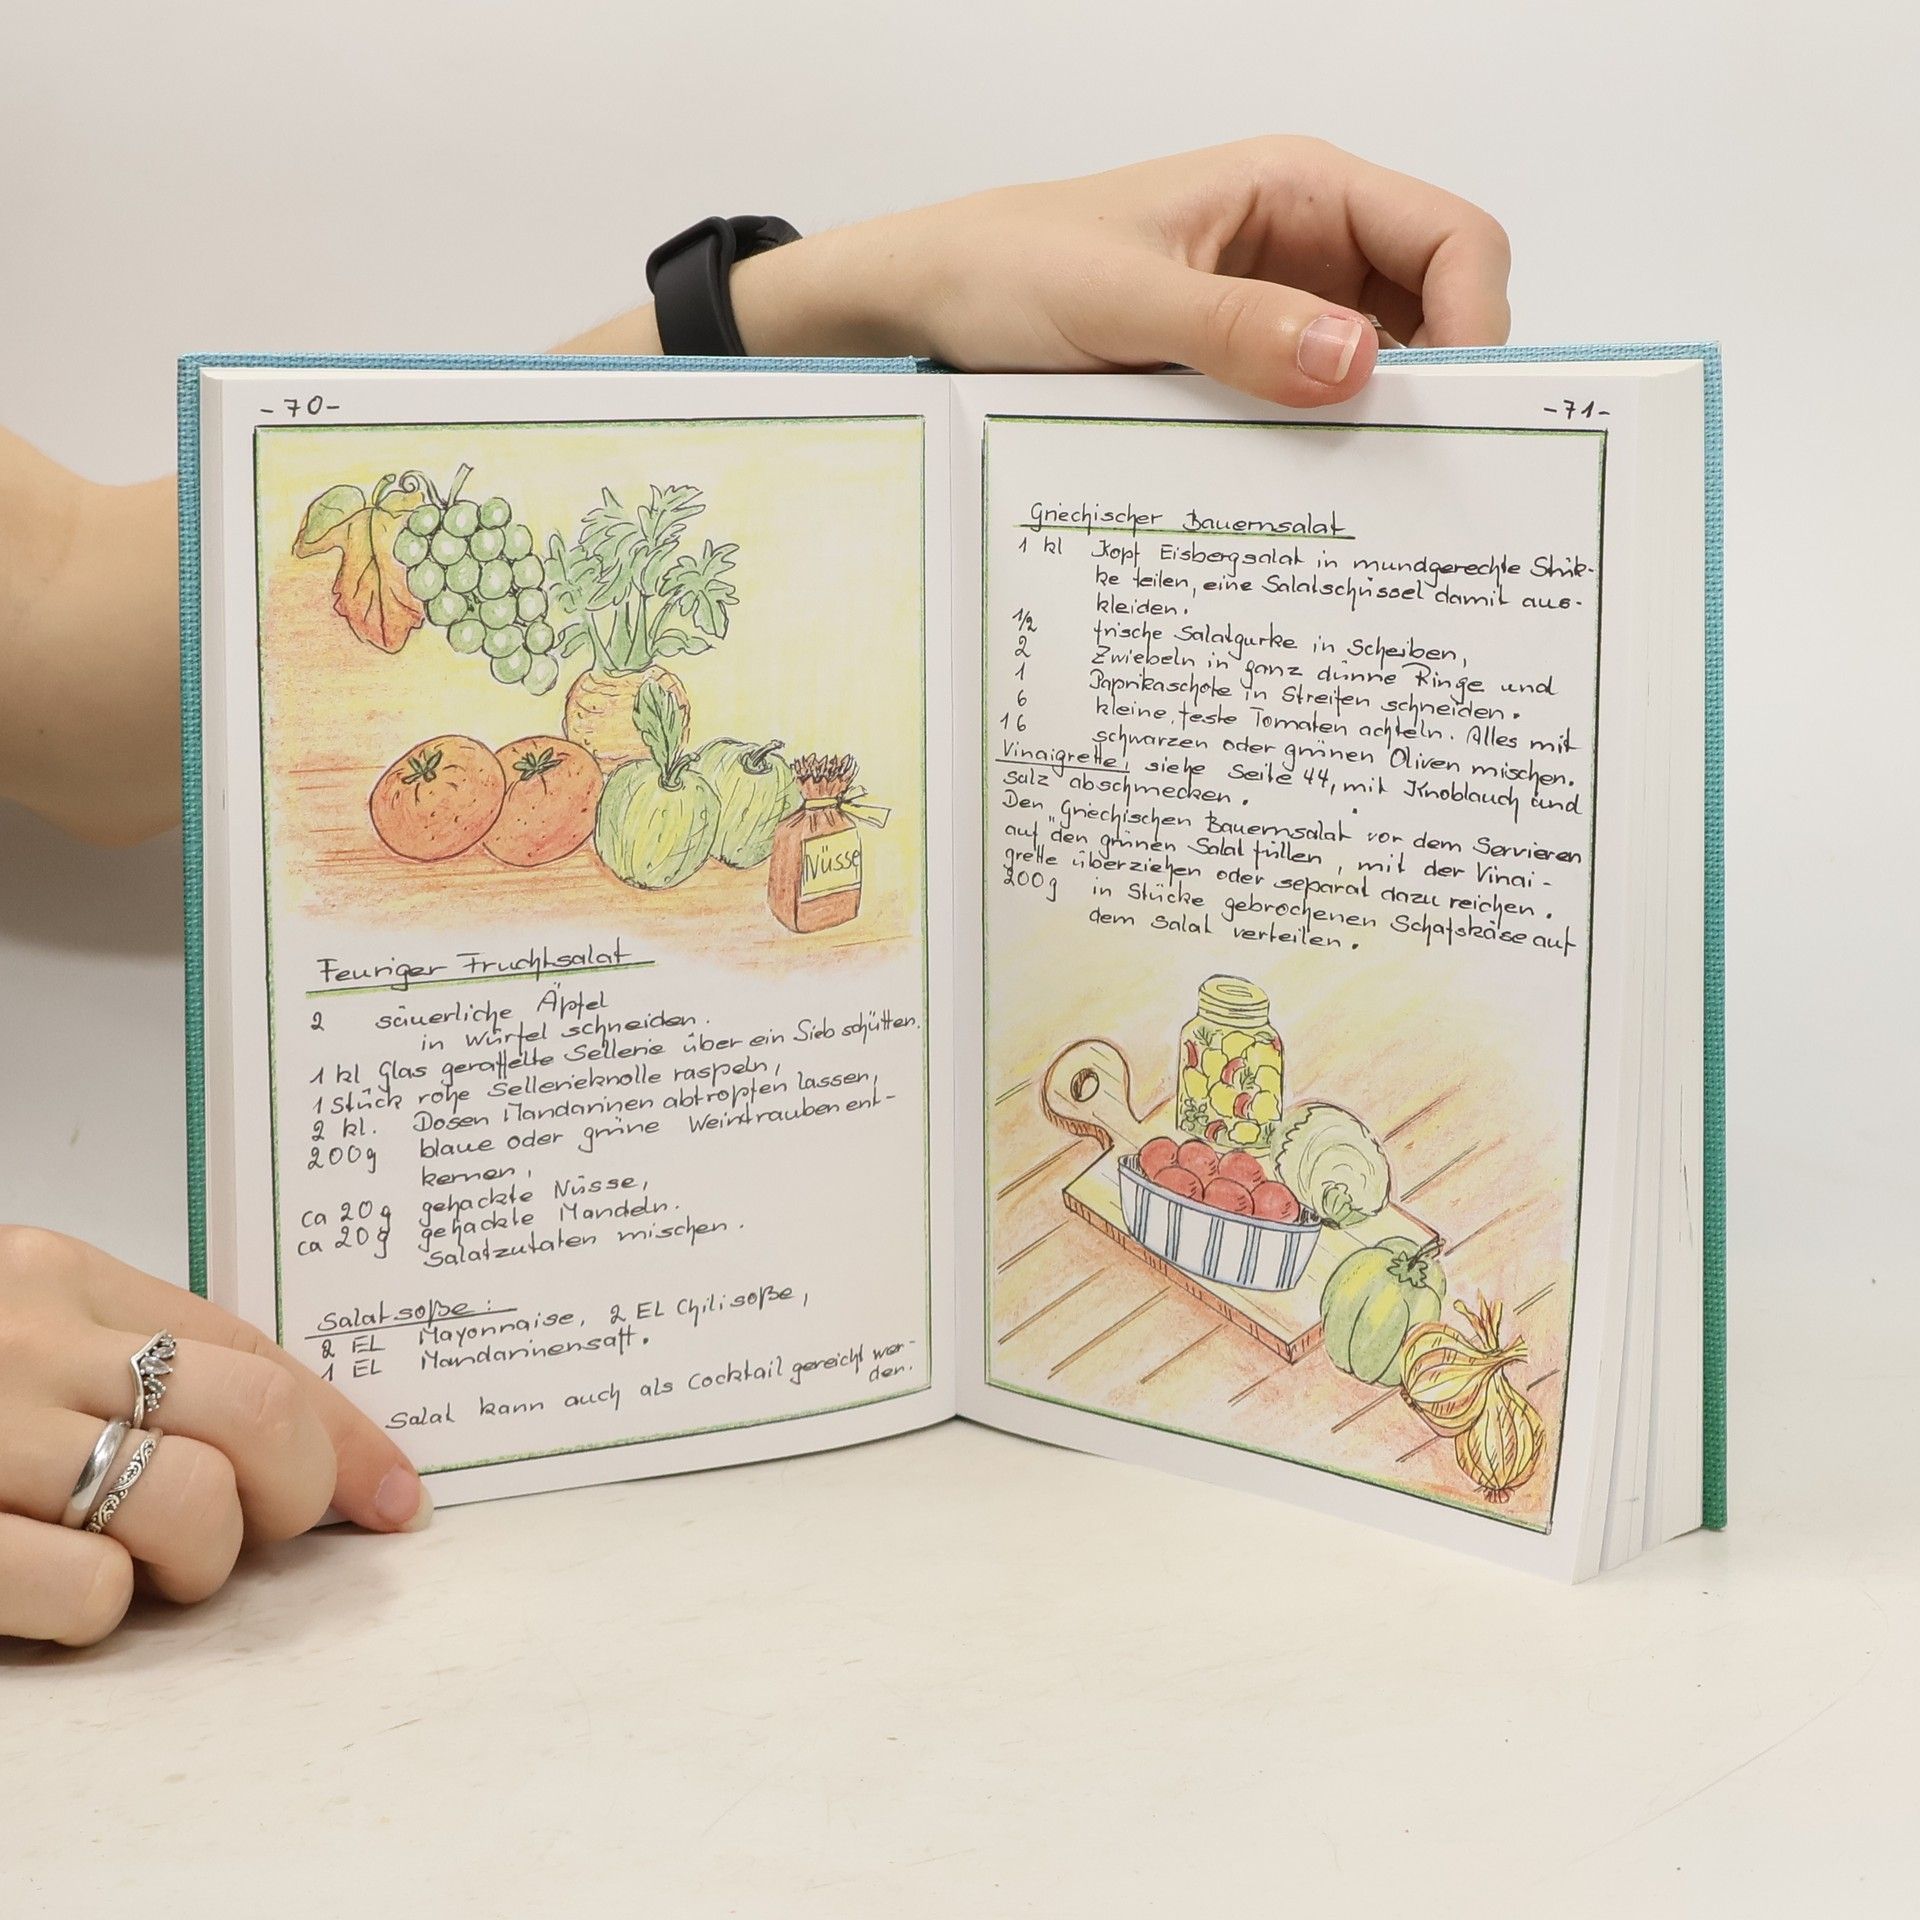 -70-
Nüsse
Feuriger Fruchtsalat
2 säuerliche Äpfel
in Würfel schneiden.
1 kl Glas geraffelte Sellerie über ein Sieb schütten.
1 Stück rohe Sellerieknolle raspeln,
2 kl. Dosen Mandarinen abtropfen lassen,
200g blaue oder grüne Weintrauben ent-
kernen,
ca 20g gehackte Nüsse,
ca 20g gehackte Mandeln.
Salatzutaten mischen.
Salatsoße:
2 EL Mayonnaise, 2 EL Chilisoße,
1 EL Mandarinensaft.
Salat kann auch als Cocktail gereicht wer-
den.
-71-
Griechischer Bauernsalat
1 kl Kopf Eisbergsalat in mundgerechte Stük-
ke teilen, eine Salatschüssel damit aus-
kleiden.
1/2 frische Salatgurke in Scheiben,
2 Zwiebeln in ganz dünne Ringe und
1 Paprikaschote in Streifen schneiden.
6 kleine, feste Tomaten achteln. Alles mit
16 schwarzen oder grünen Oliven mischen.
Vinaigrette, siehe Seite 44, mit Knoblauch und
Salz abschmecken.
Den Griechischen Bauernsalat vor dem Servieren
auf den grünen Salat füllen, mit der Vinai-
grette überziehen oder separat dazu reichen.
200g in Stücke gebrochenen Schafskäse auf
dem Salat verteilen.